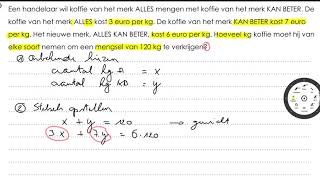 Een handelaar wil koffie van het merk ALLES mengen met koffie van het merk KAN BETER. De
koffie van het merk ALLES kost 3 euro per kg. De koffie van het merk KAN BETER kost 7 euro
per kg. Het nieuwe merk, ALLES KAN BETER, kost 6 euro per kg. Hoeveel kg koffie moet hij van
elke soort nemen om een mengsel van 120 kg te verkrijgen?
① Onbekende kiezen
aantal kg A = x
aantal kg KB = y
② Stelsel opstellen
x + y = 120 → gewicht
3x + 7y = 6·120